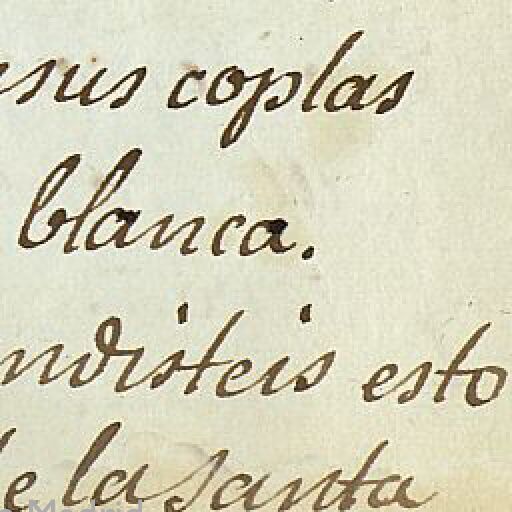 sus coplas
blanca.
ndisteis esto
de la santa